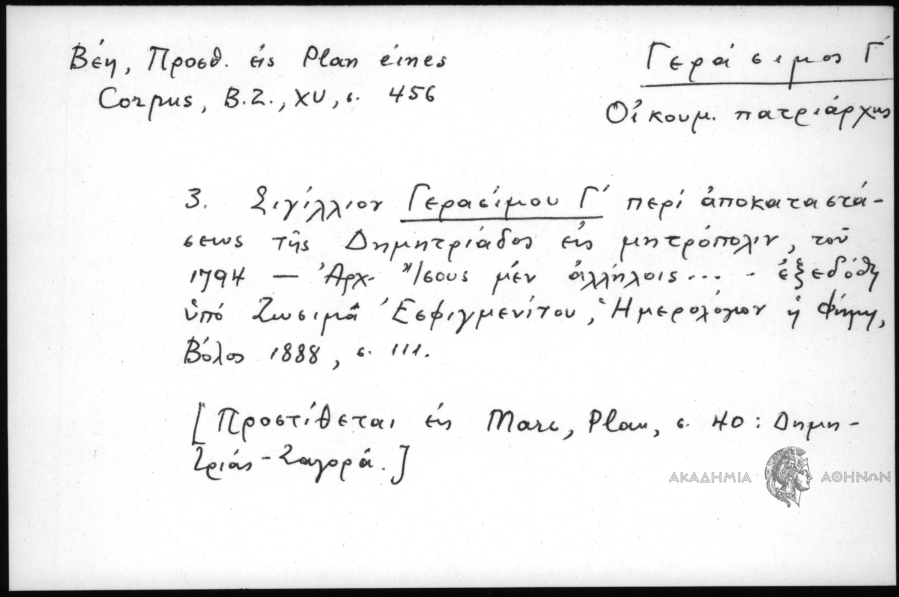 Βέη, Προσθ. εἰς Plan eines
Corpus, B.Z., XV, σ. 456
Γεράσιμος Γ΄
Οἰκουμ. πατριάρχης
3. Σιγίλλιον Γερασίμου Γ΄ περί ἀποκαταστά-
σεως τῆς Δημητριάδος εἰς μητρόπολιν, τοῦ
1794 — Ἀρχ. Ἴσους μέν ἀλλήλοις... - ἐξεδόθη
ὑπό Ζωσιμᾶ Ἐσφιγμενίτου, Ἡμερολόγιον ἡ Φήμη,
Βόλος 1888, σ. 111.
[Προστίθεται εἰς Marc, Plan, σ. 40: Δημη-
τριάς - Ζαγορά.]
ΑΚΑΔΗΜΙΑ ΑΘΗΝΩΝ